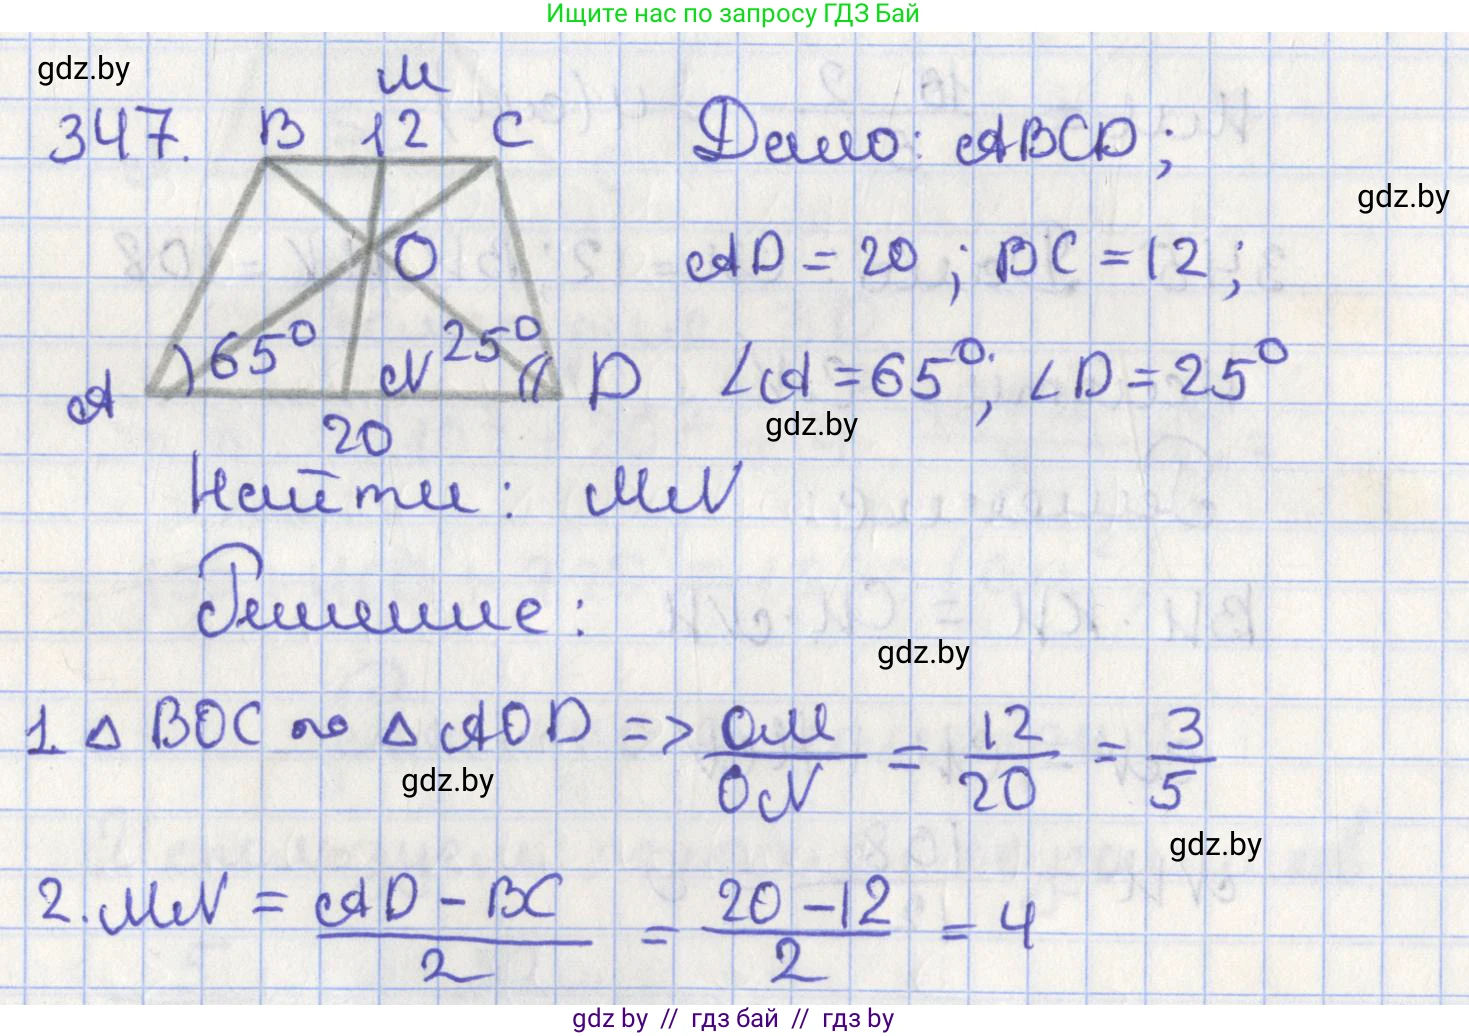 Ищите нас по запросу ГДЗ Бай
gdz.by
M
347. B 12 C Дано: ABCD;
gdz.by
O AD = 20; BC = 12;
A 65° N 25° D ∠A = 65°; ∠D = 25°
gdz.by
20
Найти: MN
Решение:
gdz.by
1. △ BOC ~ △ AOD => OM/ON = 12/20 = 3/5
gdz.by
gdz.by
2. MN = (AD - BC)/2 = (20 - 12)/2 = 4
gdz by // гдз бай // гдз by